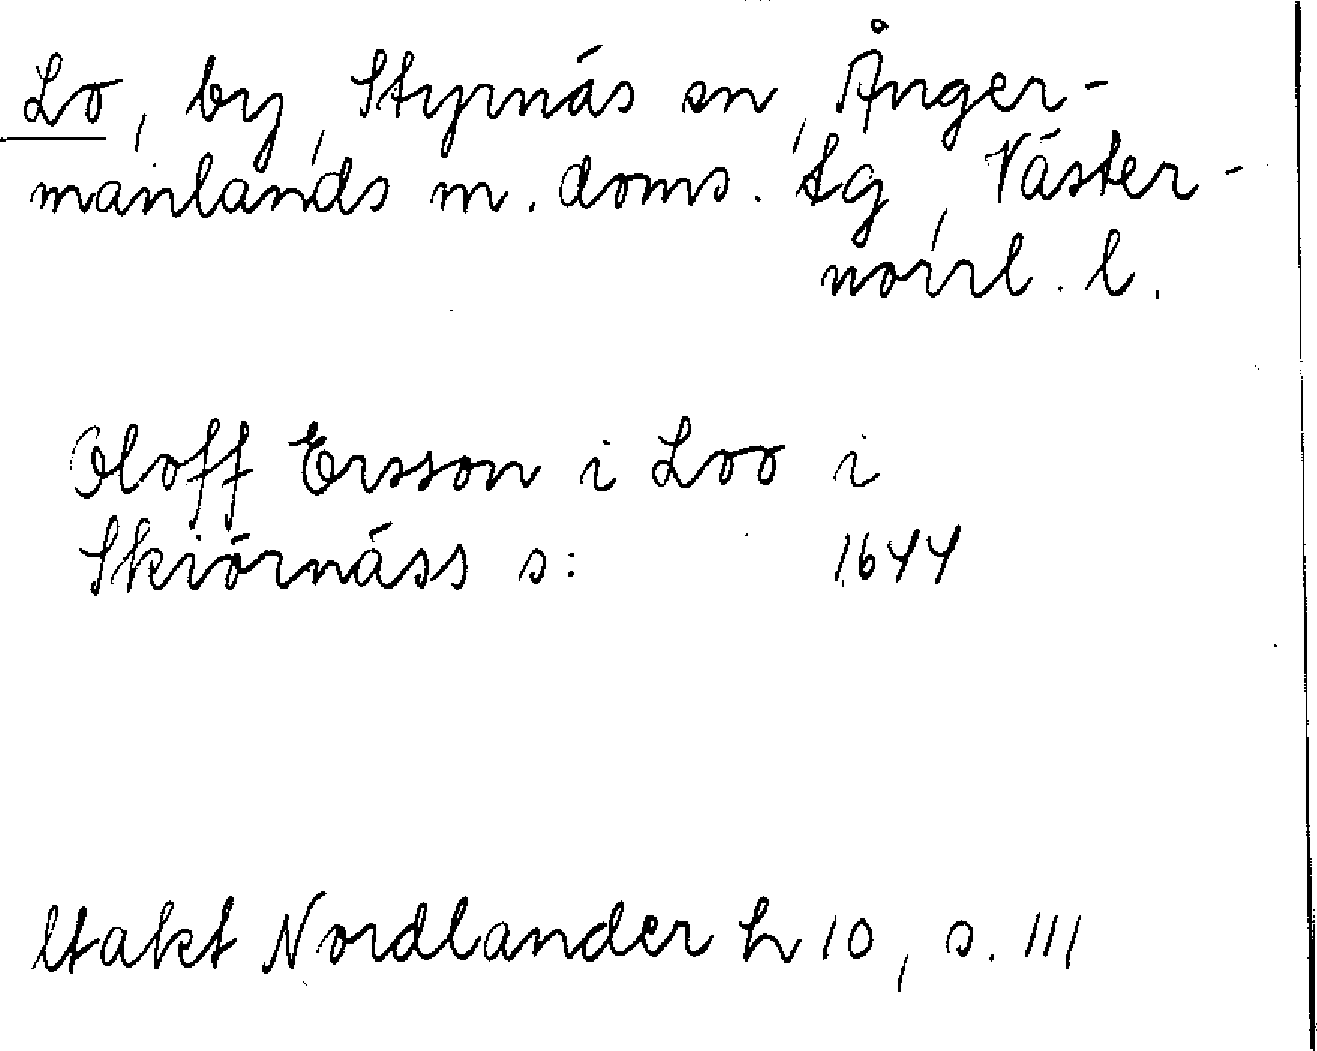 Lo, by, Styrnäs sn, Ånger-
manlands m. doms. tg, Väster-
norrl. l.
Oloff Ersson i Loo i
Skiörnäss s: 1644
Utakt Nordlander h 10, s. 111